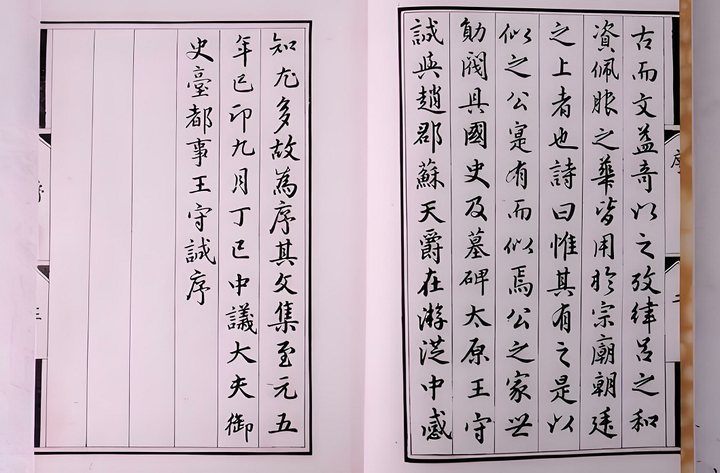 古而文益奇以之攷律呂之和
資佩服之華皆用於宗廟朝廷
之上者也詩曰惟其有之是以
似之公寔有而似焉公之家世
勛閥具國史及墓碑太原王守
誠與趙郡蘇天爵在游從中感
知尤多故為序其文集至元五
年己卯九月丁巳中議大夫御
史臺都事王守誠序